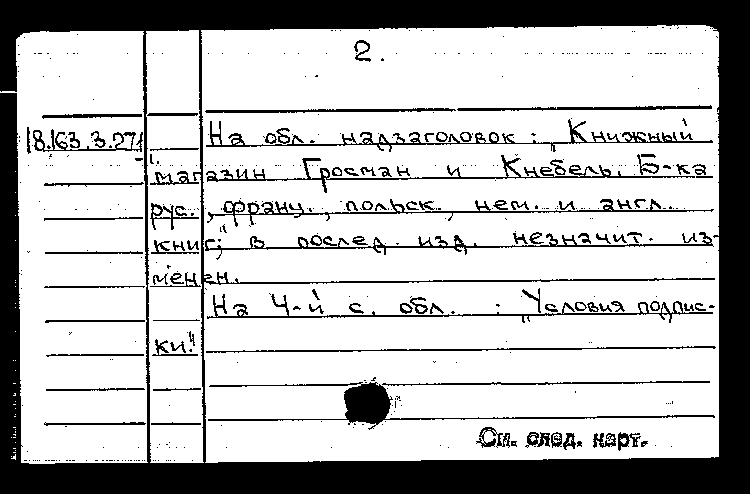 2.
18.163.3.271 На обл. надзаголовок: „Книжный
магазин Гросман и Кнебель. Б-ка
рус., франц., польск., нем. и англ.
книг"; в послед. изд. незначит. из-
менен.
На 4-й с. обл. : „Условия подпис-
ки".
См. след. карт.